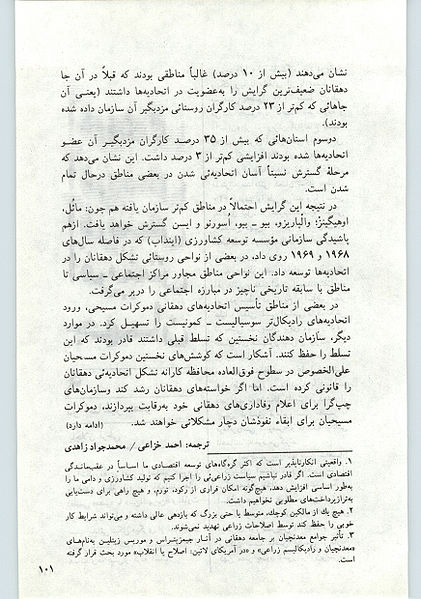 نشان می‌دهند (بیش از ۱۰ درصد) غالباً مناطقی بودند که قبلاً در آن جا
دهقانان ضعیف‌ترین گرایش را به‌عضویت در اتحادیه‌ها داشتند (یعنی آن
جاهائی که کم‌تر از ۲۳ درصد کارگران روستائی مزدبگیر آن سازمان داده شده
بودند).
دوسوم استان‌هائی که بیش از ۳۵ درصد کارگران مزدبگیر آن عضو
اتحادیه‌ها شده بودند افزایشی کم‌تر از ۳ درصد داشت. این نشان می‌دهد که
مرحلهٔ گسترش نسبتاً آسان اتحادیه‌ئی شدن در بعضی مناطق درحال تمام
شدن است.
در نتیجه این گرایش احتمالاً در مناطق کم‌تر سازمان یافته هم چون: مائُل،
اوهیگینز؛ والپاریزو، بیو ـ بیو، اُسورنو و ایسن گسترش خواهد یافت. ازهم
پاشیدگی سازمانی مؤسسه توسعه کشاورزی (ایندآپ) که در فاصله سال‌های
۱۹۶۸ و ۱۹۶۹ روی داد، در بعضی از نواحی روستائی تشکل دهقانان را در
اتحادیه‌ها توسعه داد. این نواحی مناطق مجاور مراکز اجتماعی ـ سیاسی تا
مناطق با سابقه تاریخی ناچیز در مبارزه اجتماعی را دربر می‌گرفت.
در بعضی از مناطق تأسیس اتحادیه‌های دهقانی دموکرات مسیحی، ورود
اتحادیه‌های رادیکال‌تر سوسیالیست ـ کمونیست را تسهیل کرد. در موارد
دیگر، سازمان دهندگان نخستین که تسلط قبلی داشتند قادر بودند که این
تسلط را حفظ کنند. آشکار است که کوشش‌های نخستین دموکرات مسیحیان
علی‌الخصوص در سطوح فوق‌العاده محافظه کارانه تشکل اتحادیه‌ئی دهقانان
را قانونی کرده است. اما اگر خواسته‌های دهقانان رشد کند وسازمان‌های
چپ‌گرا برای اعلام وفاداری‌های دهقانی خود به‌رقابت بپردازند، دموکرات
مسیحیان برای ابقاء نفوذشان دچار مشکلاتی خواهند شد. (ادامه دارد)
ترجمه: احمد خزاعی / محمدجواد زاهدی
۱. واقعیتی انکارناپذیر است که اکثر گره‌گاه‌های توسعه اقتصادی ما اساساً در عقب‌ماندگی
اقتصادی است. اگر قادر نباشیم سیاست زراعی‌ئی را اجرا کنیم که تولید کشاورزی و دامی ما را
به‌طور اساسی افزایش دهد، هیچ‌گونه امکان فراری از رکود، تورم، و هیچ راهی برای دست‌یابی
به‌ترازپرداخت‌های مطلوبی نخواهیم داشت.
۲. هیچ یك از مالکین کوچك، متوسط یا حتی بزرگ که بازدهی عالی داشته و می‌تواند شرایط کار
خوبی را حفظ کند توسط اصلاحات زراعی تهدید نمی‌شوند.
۳. تأثیر جوامع معدنچیان بر جامعه دهقانی در آثار جیمزپتراس و موریس زیتلین به‌نام‌های
«معدنچیان و رادیکالیسم زراعی» و «در آمریکای لاتین: اصلاح یا انقلاب» مورد بحث قرار گرفته
است.
۱۰۱